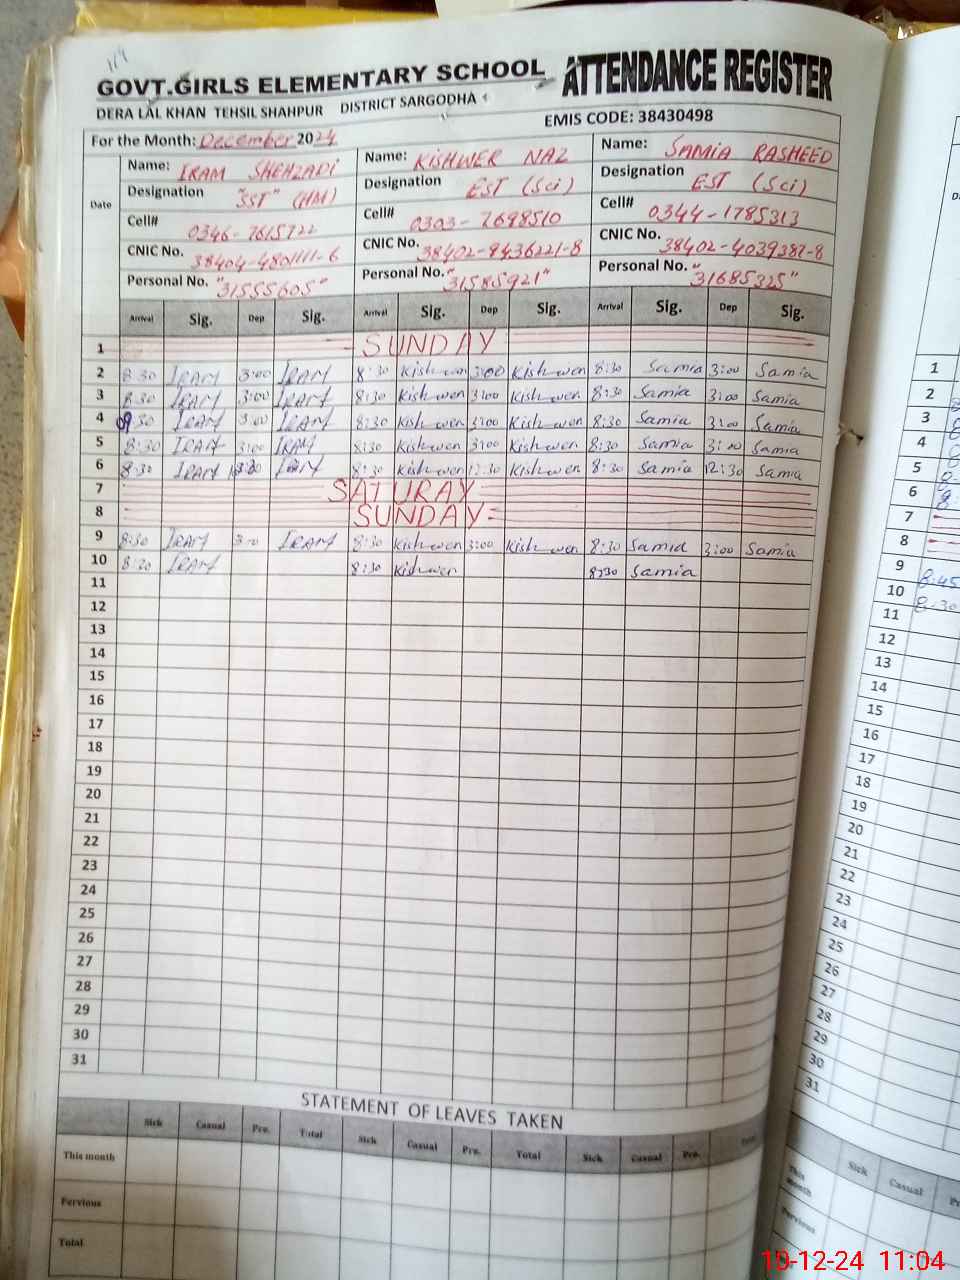 119
GOVT.GIRLS ELEMENTARY SCHOOL ATTENDANCE REGISTER
DERA LAL KHAN TEHSIL SHAHPUR DISTRICT SARGODHA
EMIS CODE: 38430498
For the Month: December 2024
Date
Name: IRAM SHEHZADI Name: KISHWER NAZ Name: SAMIA RASHEED
Designation "SST" (HM) Designation EST (Sci) Designation EST (Sci)
Cell# 0346-7615722 Cell# 0303-7698510 Cell# 0344-1785313
CNIC No. 38404-4801111-6 CNIC No. 38402-9436221-8 CNIC No. 38402-4039387-8
Personal No. "31555605" Personal No. "31585921" Personal No. "31685325"
Arrival Sig. Dep Sig. Arrival Sig. Dep Sig. Arrival Sig. Dep Sig.
1 SUNDAY
2 8:30 IRAM 3:00 IRAM 8:30 Kishwer 3:00 Kishwer 8:30 Samia 3:00 Samia
3 8:30 IRAM 3:00 IRAM 8:30 Kishwer 3:00 Kishwer 8:30 Samia 3:00 Samia
4 30 IRAM 3:00 IRAM 8:30 Kishwer 3:00 Kishwer 8:30 Samia 3:00 Samia
5 8:30 IRAM 3:00 IRAM 8:30 Kishwer 3:00 Kishwer 8:30 Samia 3:00 Samia
6 8:30 IRAM IRAM 8:30 Kishwer 12:30 Kishwer 8:30 Samia 12:30 Samia
7 SATURAY
8 SUNDAY
9 8:30 IRAM 3:00 IRAM 8:30 Kishwer 3:00 Kishwer 8:30 Samia 3:00 Samia
10 8:30 IRAM 8:30 Kishwer 8:30 Samia
11
12
13
14
15
16
17
18
19
20
21
22
23
24
25
26
27
28
29
30
31
STATEMENT OF LEAVES TAKEN
Sick Casual Pre. Total Sick Casual Pre. Total Sick Casual Pre.
This month
Pervious
Total
1
2
3
4
5
6
7
8
9 8:45
10 8:30
11
12
13
14
15
16
17
18
19
20
21
22
23
24
25
26
27
28
29
30
31
Sick Casual
This month
Pervious
10-12-24 11:04